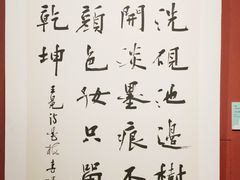 洗硯池邊樹
開淡墨痕不
顏色好只留
乾坤
王冕詩墨梅